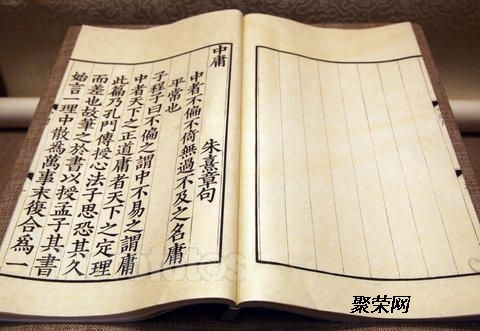 中庸
朱熹章句
中者不偏不倚無過不及之名庸
平常也
子程子曰不偏之謂中不易之謂庸
中者天下之正道庸者天下之定理
此篇乃孔門傳授心法子思恐其久
而差也故筆之於書以授孟子其書
始言一理中散為萬事末復合為一
聚荣网